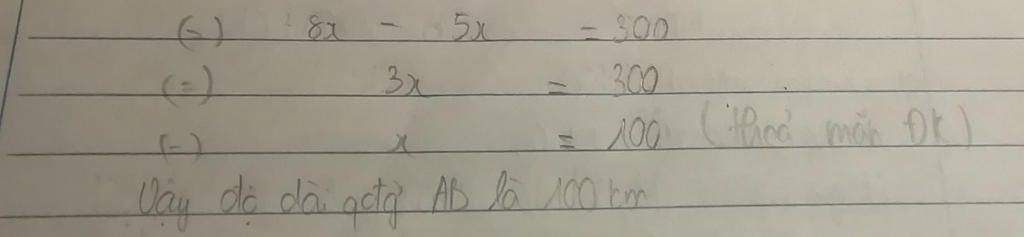 (=) 8x - 5x = 300
(=) 3x = 300
(=) x = 100 (thoả mãn ĐK)
Vậy độ dài qđg AB là 100 km